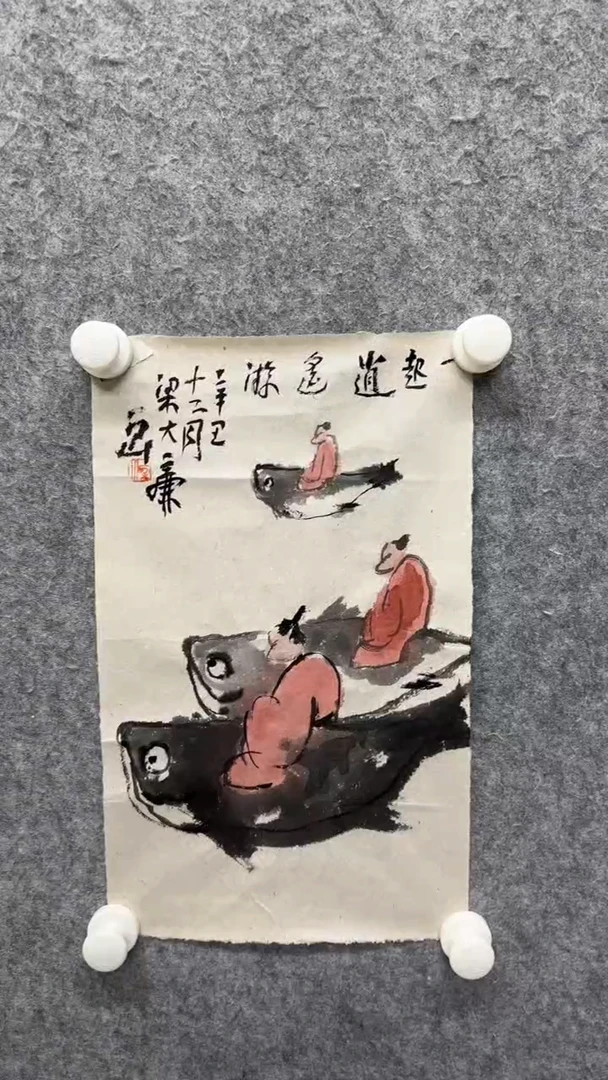 一起逍遙游
辛丑
十二月
梁大廉